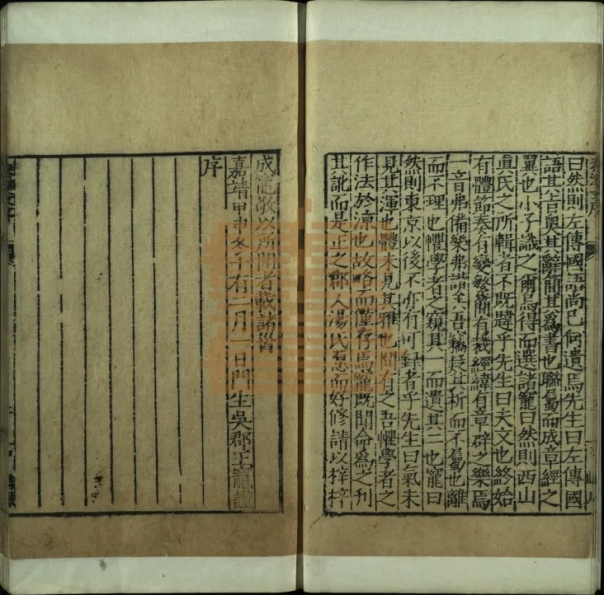 曰然則左傳國語尚已何遺焉先生曰左傳國
語其旨奧其辭簡其爲書也聯屬而成章經之
翼也小子識之爾烏得而選諸寵曰然則西山
眞氏之所輯者不既韙乎先生曰夫文也終始
有體節奏有變繁簡有裁經緯有章辟之樂焉
一音弗備樂弗諧全吾竊疑其析而不屬也離
而不理也懼學者之窺其一而遺其二也寵曰
然則東京以後不亦有可錄者乎先生曰氣未
見其渾也體未見其雅也間有之吾懼學者之
作法於涼也故略而僅存焉寵既聞命爰之利
其訛而是正之郡人湯氏惡而好修請以梓梓
成寵敬以所聞者載諸首
嘉靖甲申冬十有二月一日門生吳郡王寵謹
序